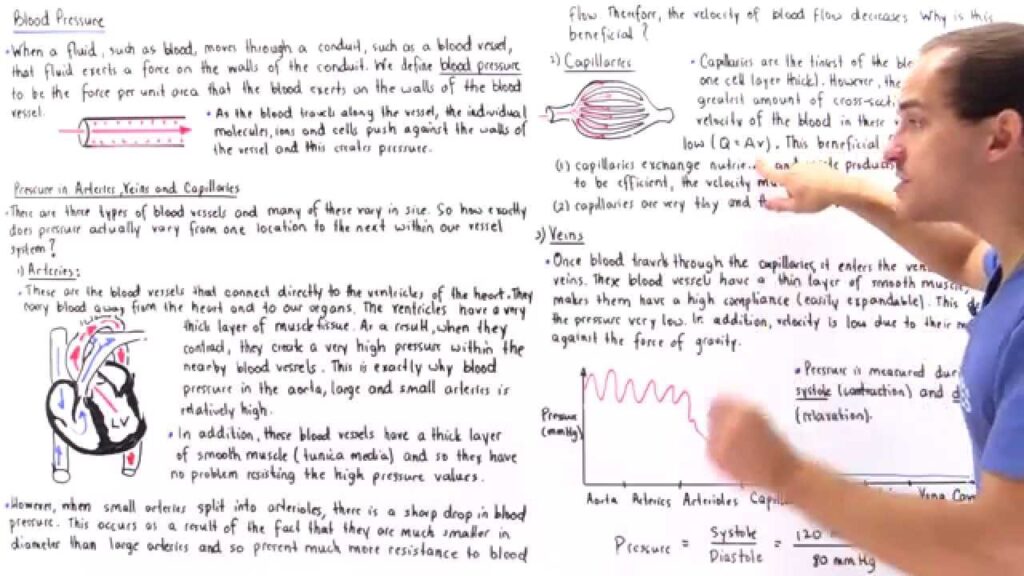 Blood Pressure
• When a fluid, such as blood, moves through a conduit, such as a blood vessel,
that fluid exerts a force on the walls of the conduit. We define blood pressure
to be the force per unit area that the blood exerts on the walls of the blood
vessel.
• As the blood travels along the vessel, the individual
molecules, ions and cells push against the walls of
the vessel and this creates pressure.
Pressure in Arteries, Veins and Capillaries
• There are three types of blood vessels and many of these vary in size. So how exactly
does pressure actually vary from one location to the next within our vessel
system?
1) Arteries:
• These are the blood vessels that connect directly to the ventricles of the heart. They
carry blood away from the heart and to our organs. The ventricles have a very
thick layer of muscle tissue. As a result, when they
contract, they create a very high pressure within the
nearby blood vessels. This is exactly why blood
pressure in the aorta, large and small arteries is
relatively high.
LV
• In addition, these blood vessels have a thick layer
of smooth muscle (tunica media) and so they have
no problem resisting the high pressure values.
• However, when small arteries split into arterioles, there is a sharp drop in blood
pressure. This occurs as a result of the fact that they are much smaller in
diameter than large arteries and so present much more resistance to blood
flow. Therefore, the velocity of blood flow decreases Why is this
beneficial?
2) Capillaries
• Capillaries are the tiniest of the
one cell layer thick). However, the
greatest amount of
velocity of the blood in these
low (Q = Av). This beneficial
(1) capillaries exchange and
to be efficient, the velocity
(2) capillaries are very tiny and
3) Veins
• Once blood travels through the capillaries, it enters the
veins. These blood vessels have a thin layer of smooth
makes them have a high compliance (easily expandable). This
the pressure very low. In addition, velocity is low due to their
against the force of gravity.
• Pressure is measured
systole (contraction) and
(relaxation).
Pressure
(mmHg)
Aorta Arteries Arterioles Vena
Pressure = Systole / Diastole = 120 / 80 mm Hg